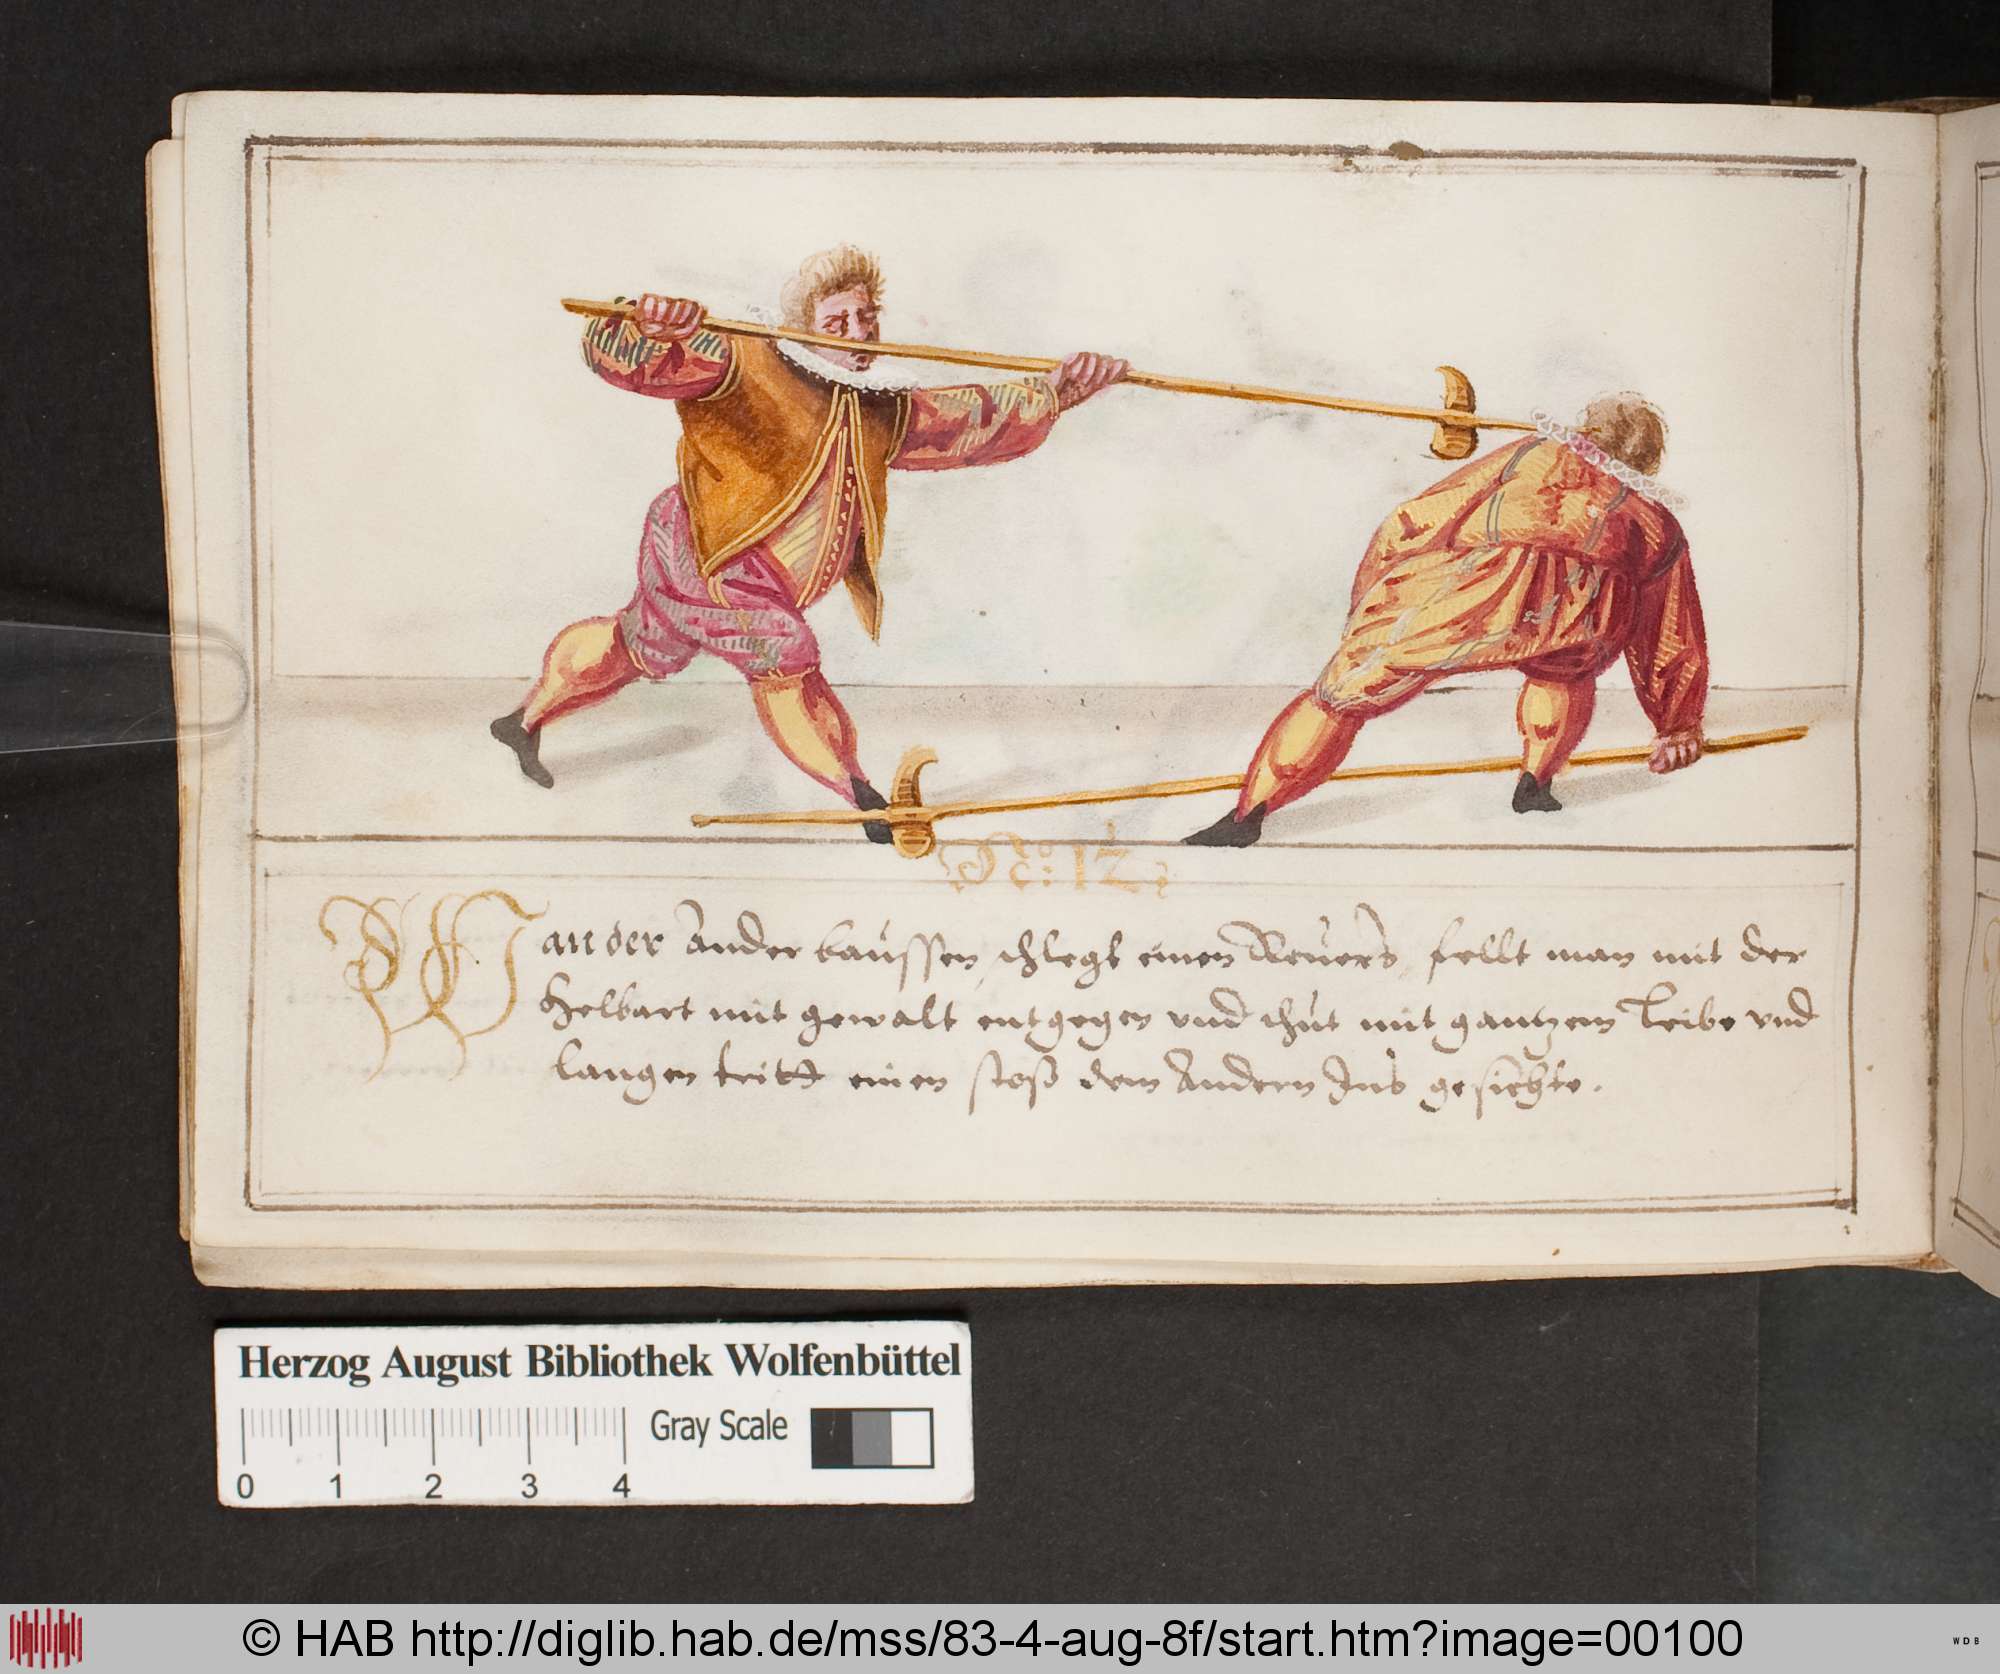 No: 12
Wan der Ander baussen schlegt einen Reuers, fellt man mit der
Helbart mit gewalt entgegen vnd thut mit gantzem Leibe vnd
langen tritt einen stoß dem Andern Ins gesichte.
Herzog August Bibliothek Wolfenbüttel
Gray Scale
0 1 2 3 4
© HAB http://diglib.hab.de/mss/83-4-aug-8f/start.htm?image=00100
WDB